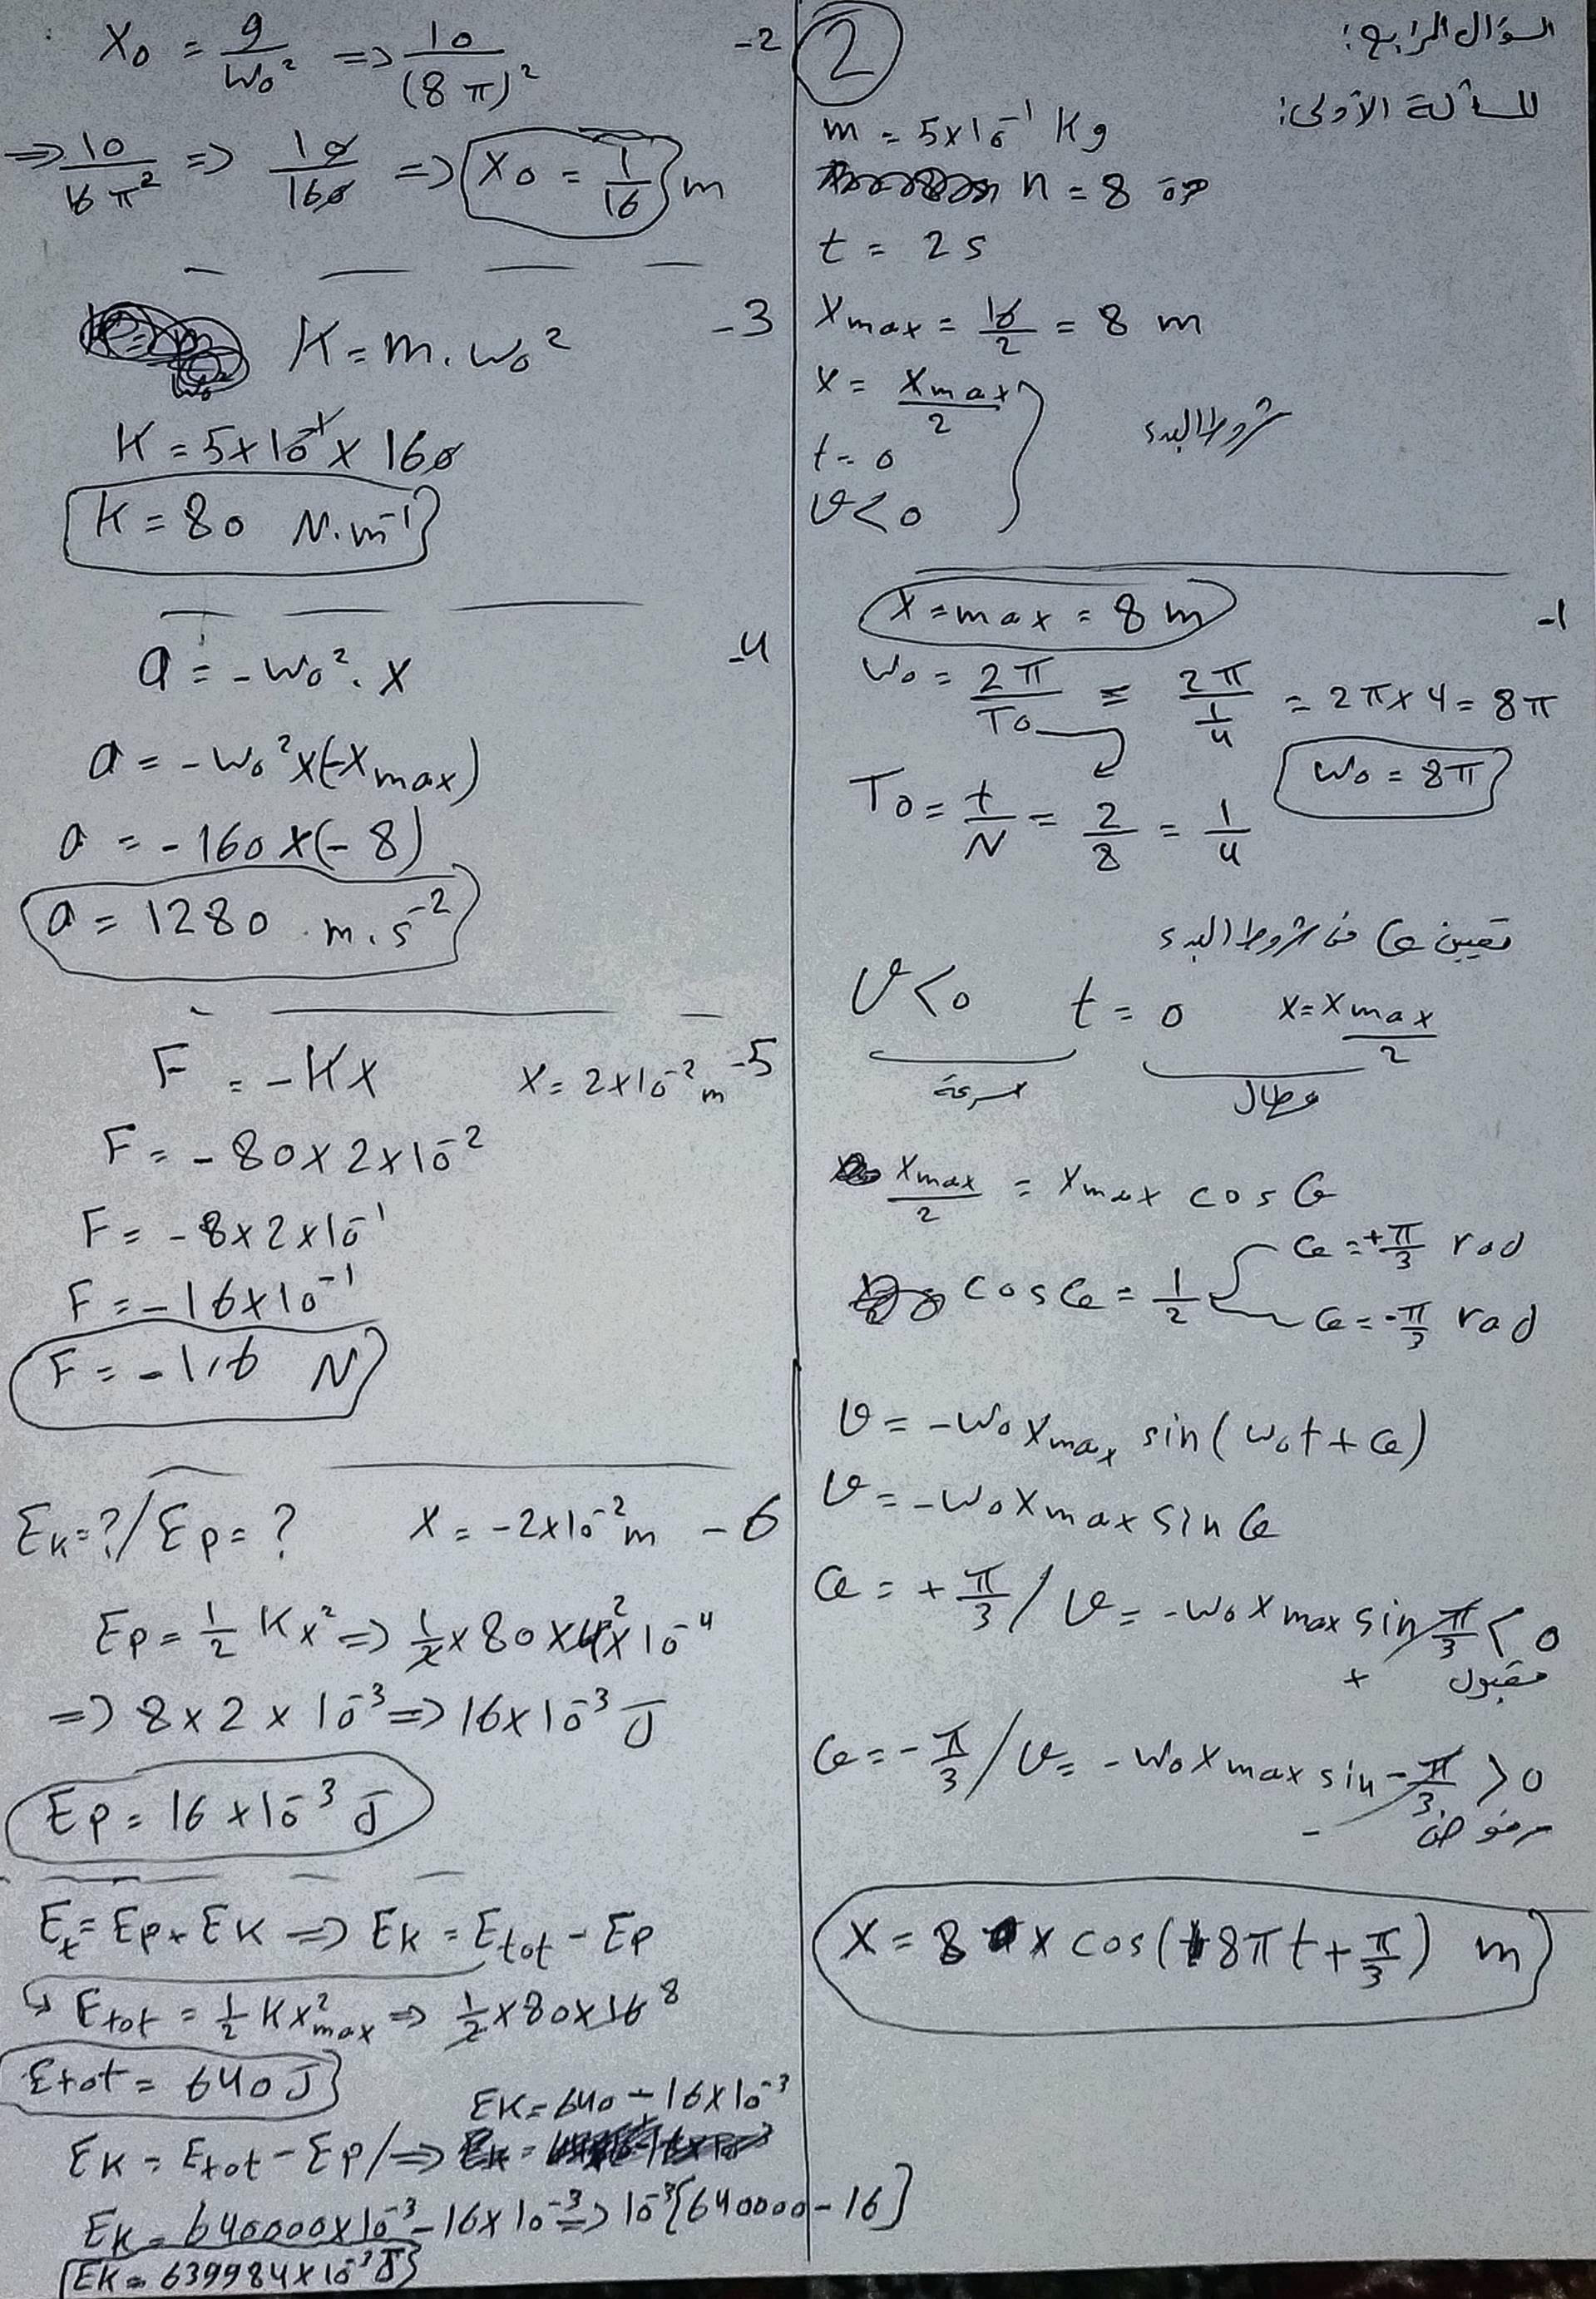 السؤال الرابع:
المسألة الأولى:
2
m = 5×10⁻¹ Kg
n = 8 مرة
t = 2 s
Xmax = 16/2 = 8 m
X = Xmax/2
t = 0
v < 0
شروط البدء
-1
X = max = 8 m
W₀ = 2π/T₀ = 2π/(1/4) = 2π×4 = 8π
W₀ = 8π
T₀ = t/N = 2/8 = 1/4
تعيين φ من شروط البدء
v < 0 t = 0 X = Xmax/2
سرعة مطال
Xmax/2 = Xmax cos φ
cos φ = 1/2
φ = +π/3 rad
φ = -π/3 rad
v = -W₀ Xmax sin(W₀t + φ)
v = -W₀ Xmax sin φ
φ = +π/3 / v = -W₀ Xmax sin π/3 < 0
+ مقبول
φ = -π/3 / v = -W₀ Xmax sin -π/3 > 0
- مرفوض
X = 8 × cos(8πt + π/3) m
-2
X₀ = g/W₀² => 10/(8π)²
=> 10/16π² => 10/160 => X₀ = 1/16 m
-3
K = m . W₀²
K = 5×10⁻¹ × 160
K = 80 N.m⁻¹
-4
a = -W₀² . X
a = -W₀² × (-Xmax)
a = -160 × (-8)
a = 1280 m.s⁻²
-5
F = -KX X = 2×10⁻² m
F = -80×2×10⁻²
F = -8×2×10⁻¹
F = -16×10⁻¹
F = -1,6 N
-6
EK = ? / Ep = ? X = -2×10⁻² m
Ep = 1/2 KX² => 1/2 × 80 × 4 2 × 10⁻⁴
=> 8×2×10⁻³ => 16×10⁻³ J
Ep = 16×10⁻³ J
Et = Ep + EK => EK = Etot - Ep
Etot = 1/2 KX²max => 1/2 × 80 × 16 8
Etot = 640 J
EK = 640 - 16×10⁻³
EK = Etot - Ep / =>
EK = 640000×10⁻³ - 16×10⁻³ => 10⁻³[640000 - 16]
EK = 639984×10⁻³ J